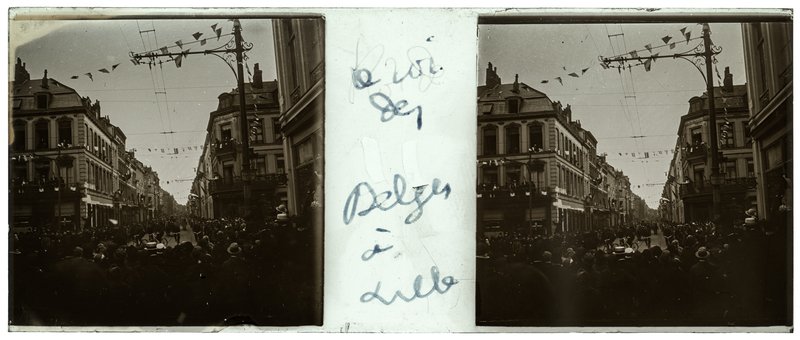 le roi
des
Belges
à
Lille